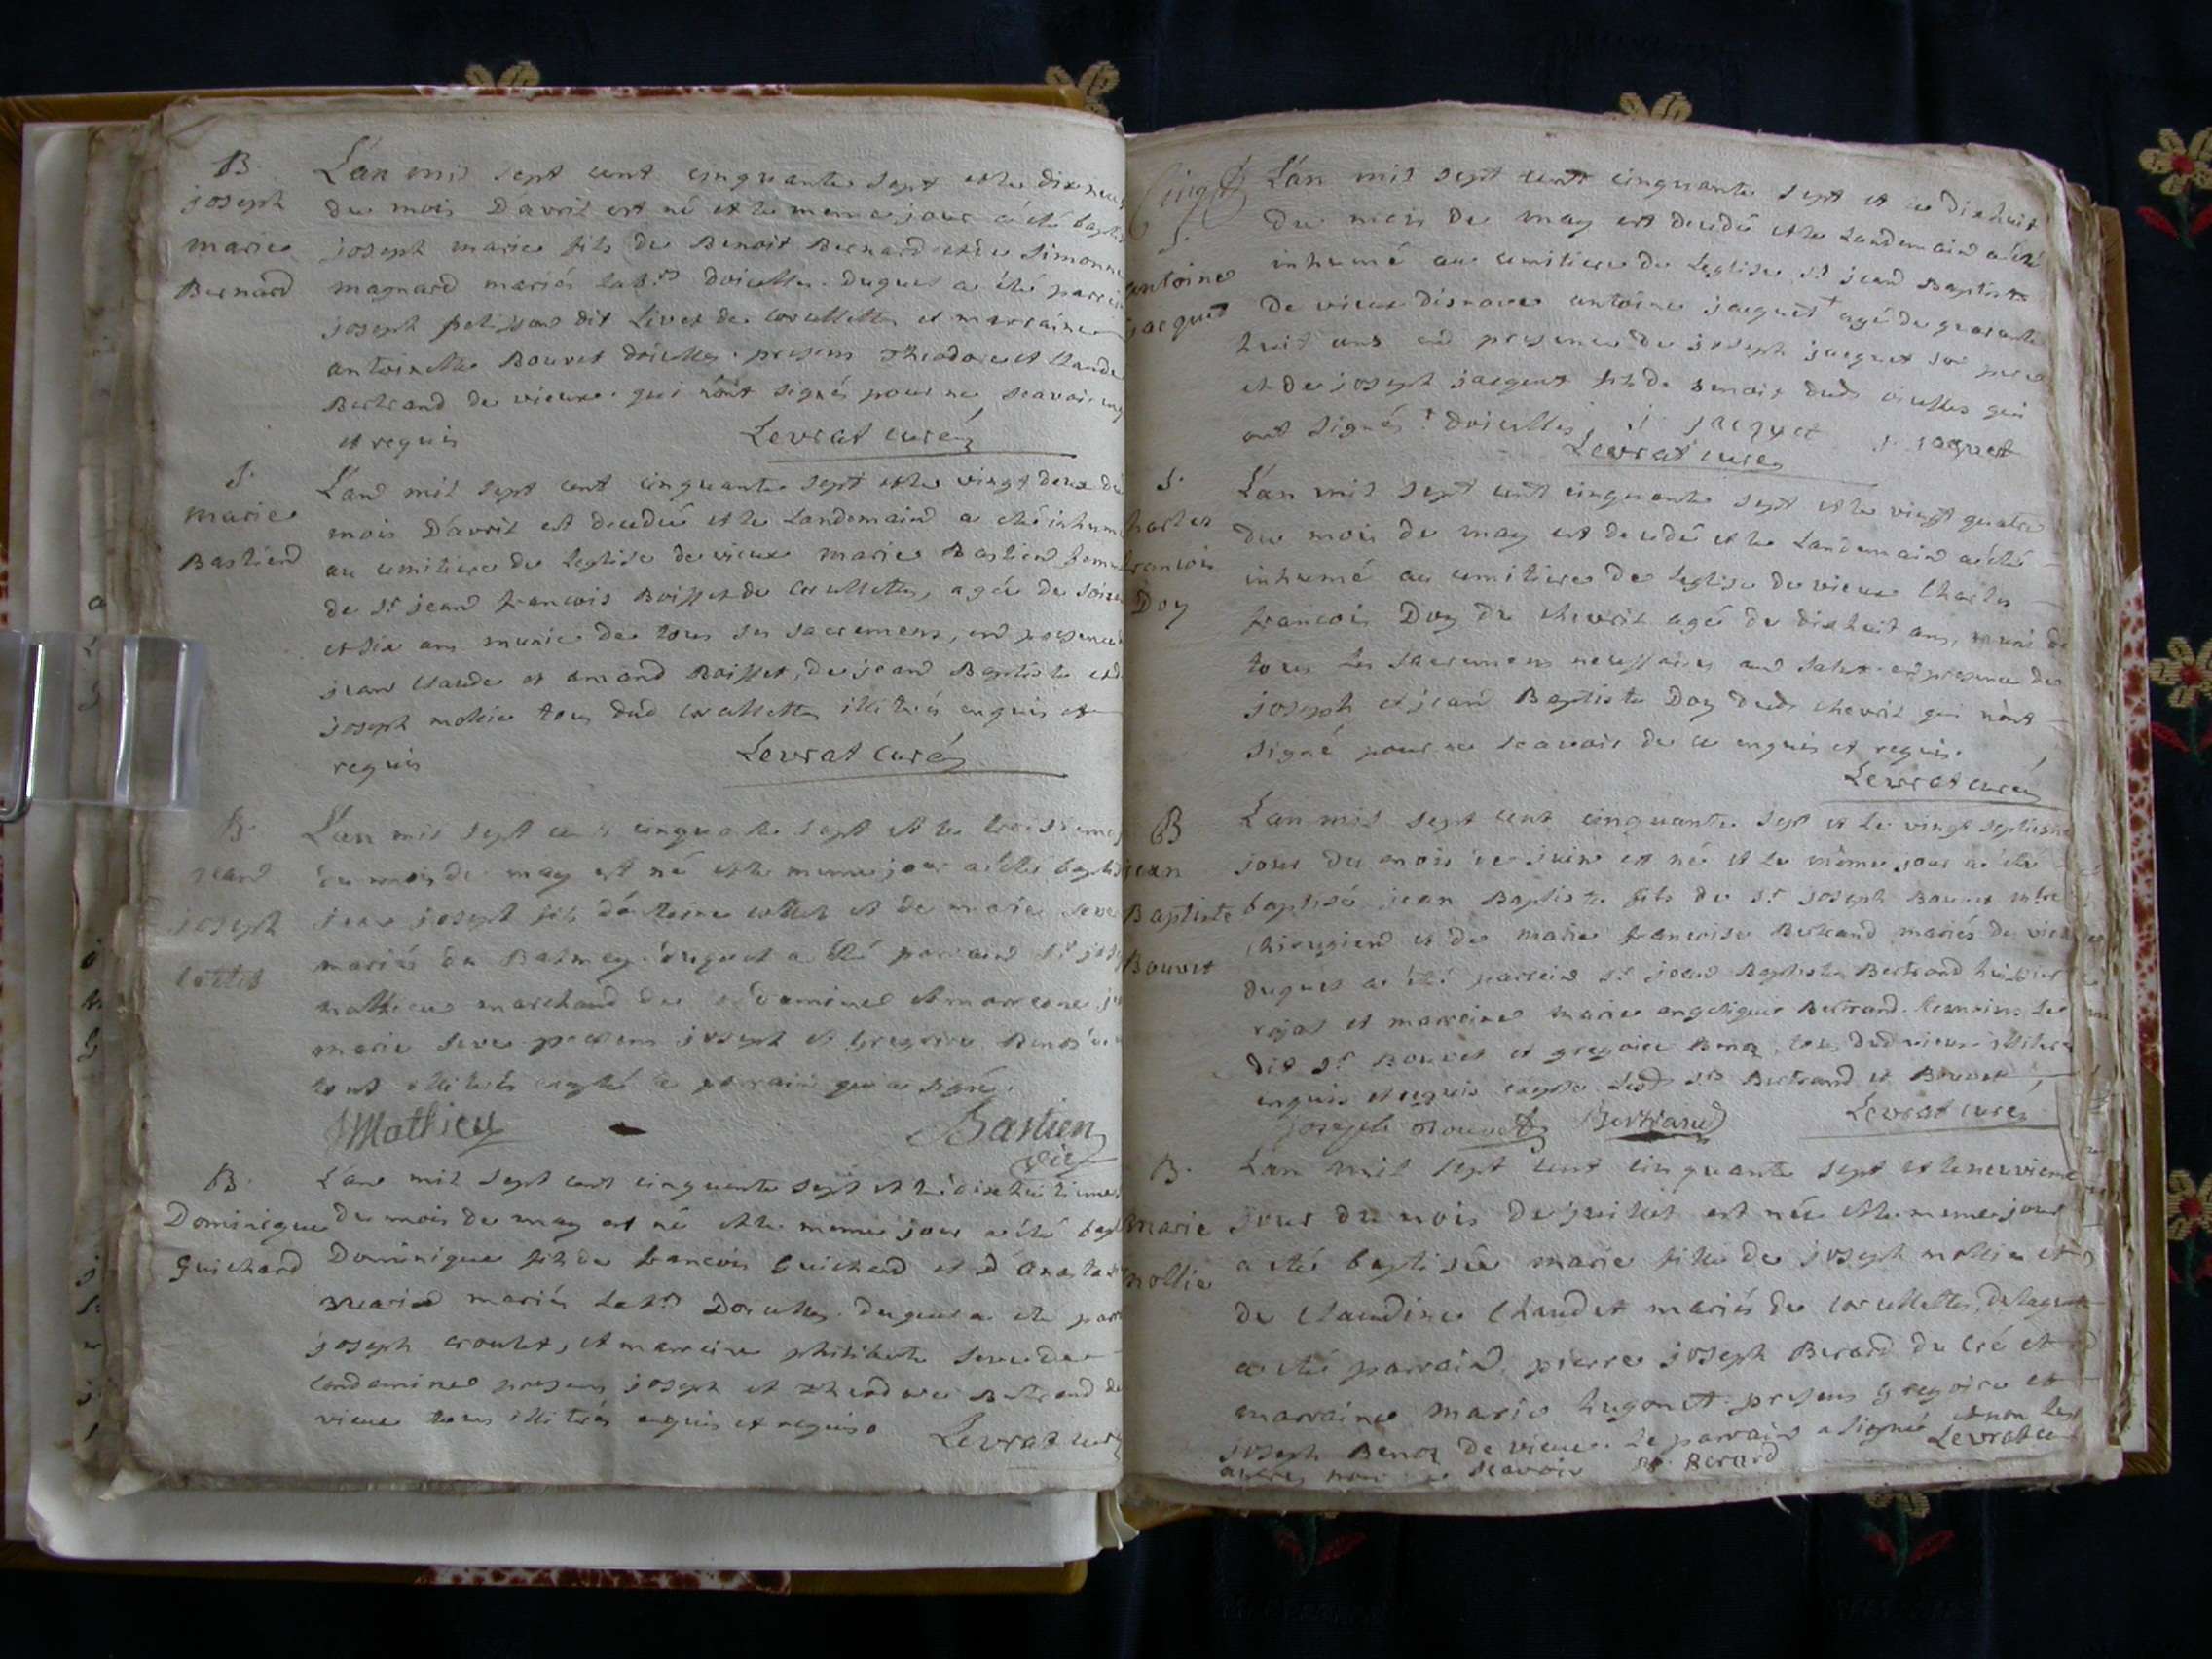 B.
joseph
marie
Bernard
L'an mil sept cent cinquante sept et le dixneuf
du mois D'avril est né et le meme jour a été baptisé
joseph marie fils de Benoit Bernard et de Simonne
magnard mariés lab.rs doicelles. duquel a été parrein
joseph petijean dit Livet de corcellettes et marraine
antoinette Bouvet doicelles. presens Theodore et Claude
Bertrand de vieux. qui n'ont signés pour ne scavoir enq
et requis
Levrat curé
S.
marie
Bastiend
L'and mil sept cent cinquante sept et le vingt deux du
mois D'avril est decedeé et le Landemaind a été inhumé
au cemitiere de Leglise de vieux marie Bastiend femme
de Sr. jeand francois Boisset de corcellettes, agée de soixan
et six ans munie de tous ses sacremens, end presence
jeand Claude et amand Boisset, de jeand Baptiste et d
joseph mollie tous dud corcellettes illitrés enquis et
requis
Levrat curé
B.
jeand
joseph
collet
L'an mil sept cent cinquante sept et le troisieme
du mois de may est né et le meme jour a été baptisé
jean joseph fils d'antoine collet et de marie seve
mariés du Balmey. duquel a été parraind Sr. jose
mathieu marchand de condamine et marreine
marie seve presens joseph et Gregoire Benoz
tous illitrés excepté le parrain qui a signé.
JMathieu
Bastien
vic
B.
Dominique
Guichard
L'and mil sept cent cinquante sept et le dixhuitieme
du mois de may est né et le meme jour a été bap
Dominique fils de francois Guichard et d'Anastasie
mariés lab.rs Doicelles. duquel a été parr
joseph croulet, et marreine philiberte seve de
condamine presens joseph et theodore Bertrand de
vieux tous illitrés enquis et requis.
Levrat curé
S.
antoine
jacquet
L'an mil sept cent cinquante sept et le dixhuit
du mois de may est decedé et le Landemaind a été
inhumé au cemitiere de Leglise st jeand Baptiste
de vieux disnave antoine jacquet + agé de quarante
huit ans end presence de joseph jacquet son pere
et de joseph jacquet fils de benoit dud. oicelles qui
ont signés. + doicelles j jacquet j. jaquet
Levrat curé
S.
charles
francois
Doy
L'an mil sept cent cinquante sept et le vingt quatre
du mois de may est decedé et le Landemaind a été
inhumé au cemitiere de Leglise de vieux Charles
francois Doy de chevril agé de dixhuit ans, muni de
tous les sacremens necessaires aud salut. en presence de
joseph et jeand Baptiste Doy dud. chevril qui n'ont
signé pour ne scavoir de ce enquis et requis.
Levrat curé
B
jean
Baptiste
Bouvet
L'an mil sept cent cinquante sept et le vingt septiesme
jour du mois de juin est né et le même jour a été
baptisé jean Baptiste fils de sr. joseph Bouvet mtre
chirugiend et de marie francoise Bertrand mariés de vieux
duquel a été parreind sr. jeand Baptiste Bertrand huissier
rojal et marreine marie angelique Bertrand. temoins le
dit sr. Bouvet et gregoire Benoz, tous dud vieux illitrés
enquis et requis excepté lesd srs Bertrand et Bouvet
joseph Bouvet Bertrand Levrat curé
B.
marie
mollie
L'an mil sept cent cinquante sept et le neuvieme
jour du mois de juillet est née et le meme jour
a été baptisée marie fille de joseph mollie et
de Claudine Chaudet mariés de corcellettes, de laquelle
a été parraind pierre joseph Berard du cré et
marraine marie hugonet. presens Gregoire et
joseph Benoz de vieux. le parrain a signé et non les
autres pour ne scavoir Berard Levrat curé